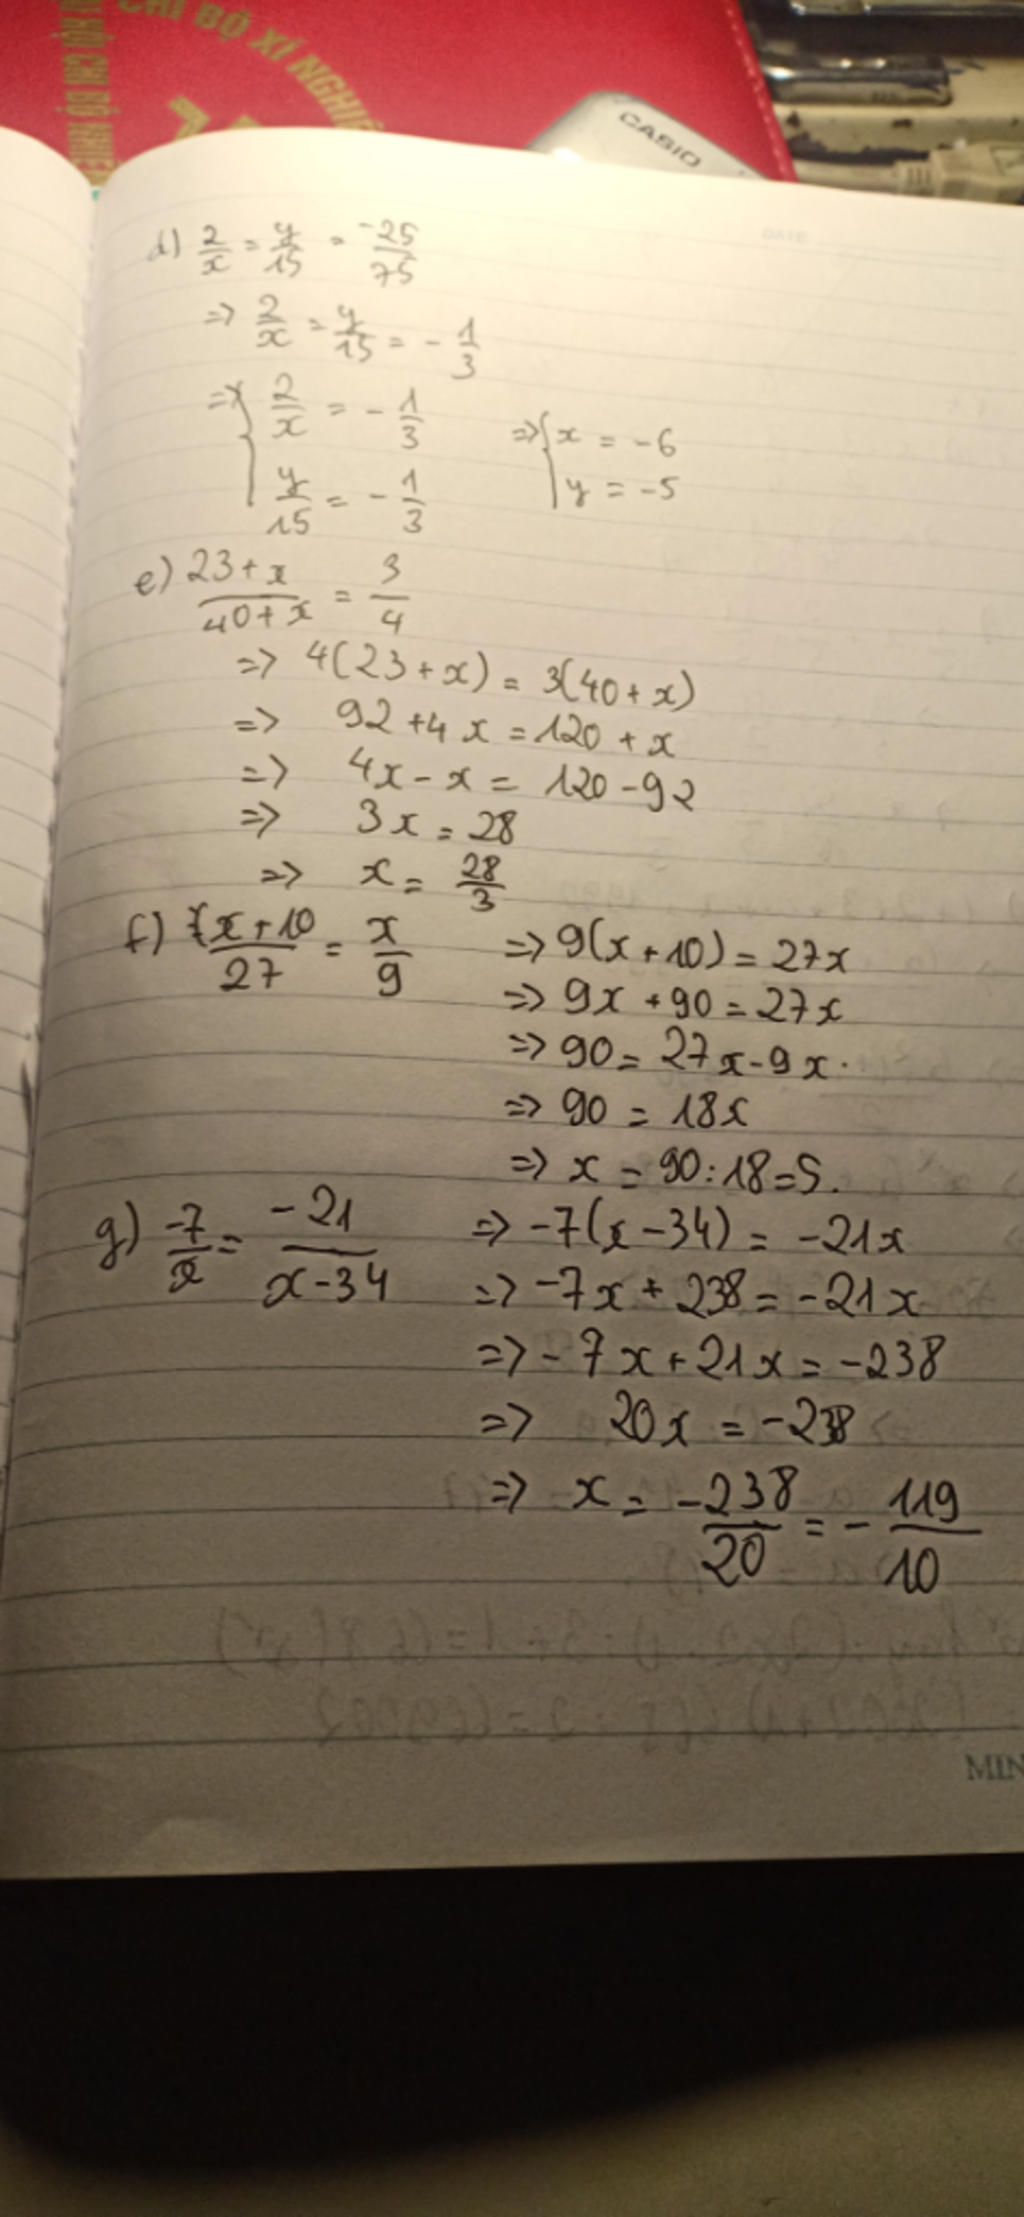 CHI BỘ XÍ NGHIỆ
HỘI CHI BỘ NHIỆ
CASIO
DATE
d) 2/x = y/15 = -25/75
=> 2/x = y/15 = -1/3
=> { 2/x = -1/3 => { x = -6
y/15 = -1/3 y = -5
e) 23+x/40+x = 3/4
=> 4(23+x) = 3(40+x)
=> 92+4x = 120+x
=> 4x-x = 120-92
=> 3x = 28
=> x = 28/3
f) x+10/27 = x/9 => 9(x+10) = 27x
=> 9x+90 = 27x
=> 90 = 27x-9x.
=> 90 = 18x
=> x = 90:18=5.
g) -7/x = -21/x-34 => -7(x-34) = -21x
=> -7x+238 = -21x
=> -7x+21x = -238
=> 20x = -238
=> x = -238/20 = -119/10
MIN